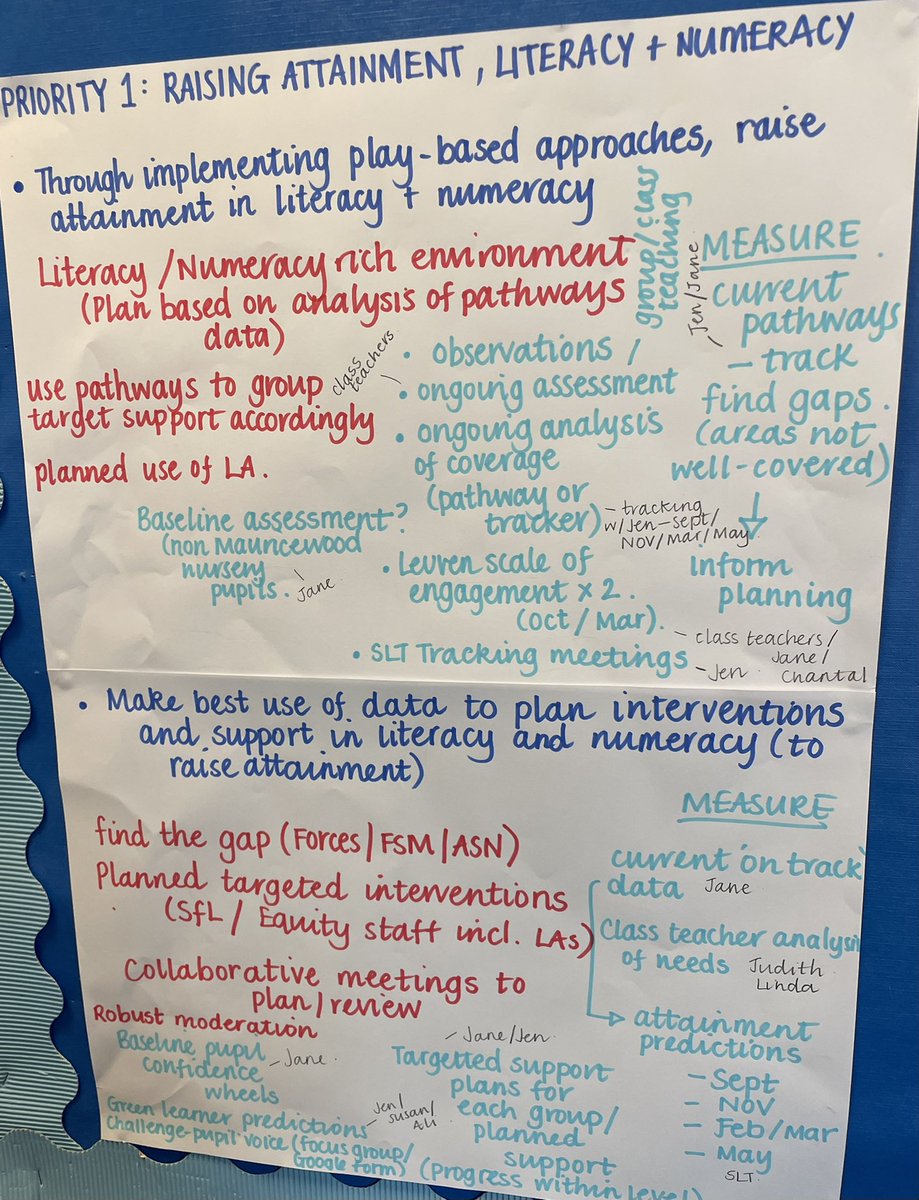 PRIORITY 1: RAISING ATTAINMENT, LITERACY + NUMERACY
• Through implementing play-based approaches, raise
attainment in literacy + numeracy
Literacy /Numeracy rich environment
(Plan based on analysis of pathways
data)
use pathways to group
target support accordingly
planned use of LA.
group/class
teaching
Jen/Jane
class
teachers
• observations /
• ongoing assessment
• ongoing analysis
of coverage
(pathway or
tracker)
- tracking
w/Jen-sept/
NOV/Mar/May
Baseline assessment?
(non Mauncewood
nursery
pupils.
Jane
• Leuven scale of
engagement x 2.
(Oct / Mar).
- class teachers/
Jane/
Chantal
• SLT Tracking meetings
- Jen
MEASURE
current
pathways
- track
find gaps.
(areas not
well-covered)
inform
planning
• Make best use of data to plan interventions
and support in literacy and numeracy (to
raise attainment)
find the gap (Forces|FSM|ASN)
Planned targeted interventions
(SfL / Equity staff incl. LAs)
Collaborative meetings to
plan/review
Robust moderation
Baseline pupil
confidence
wheels
- Jane.
Green learner predictions
Jen/
Susan/
Ali
Challenge-pupil voice (focus group/
Google form)
- Jane/Jen
Targetted support
plans for
each group/
planned
support
(progress within level)
MEASURE
current 'on track'
data Jane
Class teacher analysis
of needs Judith
Linda
attainment
predictions
- Sept
- NOV
- Feb/Mar
- May
SLT.